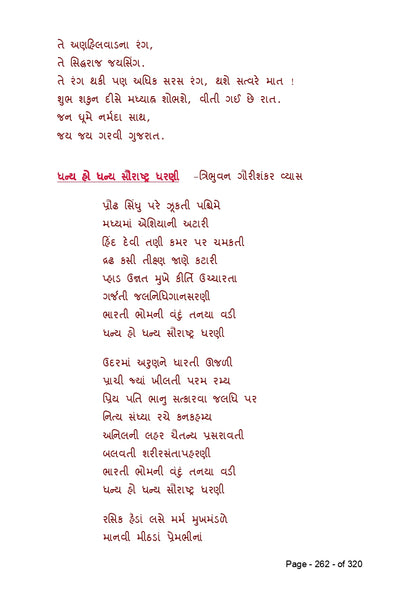 તે અણહિલવાડના રંગ,
તે સિદ્ધરાજ જયસિંગ.
તે રંગ થકી પણ અધિક સરસ રંગ, થશે સત્વરે માત !
શુભ શકુન દીસે મધ્યાહ્ન શોભશે, વીતી ગઈ છે રાત.
જન ઘૂમે નર્મદા સાથ,
જય જય ગરવી ગુજરાત.
ધન્ય હો ધન્ય સૌરાષ્ટ્ર ધરણી –ત્રિભુવન ગૌરીશંકર વ્યાસ
પ્રૌઢ સિંધુ પરે ઝૂકતી પશ્ચિમે
મધ્યમાં એશિયાની અટારી
હિંદ દેવી તણી કમર પર ચમકતી
દ્રઢ કસી તીક્ષ્ણ જાણે કટારી
પ્હાડ ઉન્નત મુખે કીર્તિ ઉચ્ચારતા
ગર્જતી જલનિધિગાનસરણી
ભારતી ભોમની વંદું તનયા વડી
ધન્ય હો ધન્ય સૌરાષ્ટ્ર ધરણી
ઉદરમાં અરુણને ધારતી ઊજળી
પ્રાચી જ્યાં ખીલતી પરમ રમ્ય
પ્રિય પતિ ભાનુ સત્કારવા જલધિ પર
નિત્ય સંધ્યા રચે કનકહર્મ્ય
અનિલની લહર ચૈતન્ય પ્રસરાવતી
બલવતી શરીરસંતાપહરણી
ભારતી ભોમની વંદું તનયા વડી
ધન્ય હો ધન્ય સૌરાષ્ટ્ર ધરણી
રસિક હૈડાં લસે મર્મ મુખમંડળે
માનવી મીઠડાં પ્રેમભીનાં
Page - 262 - of 320